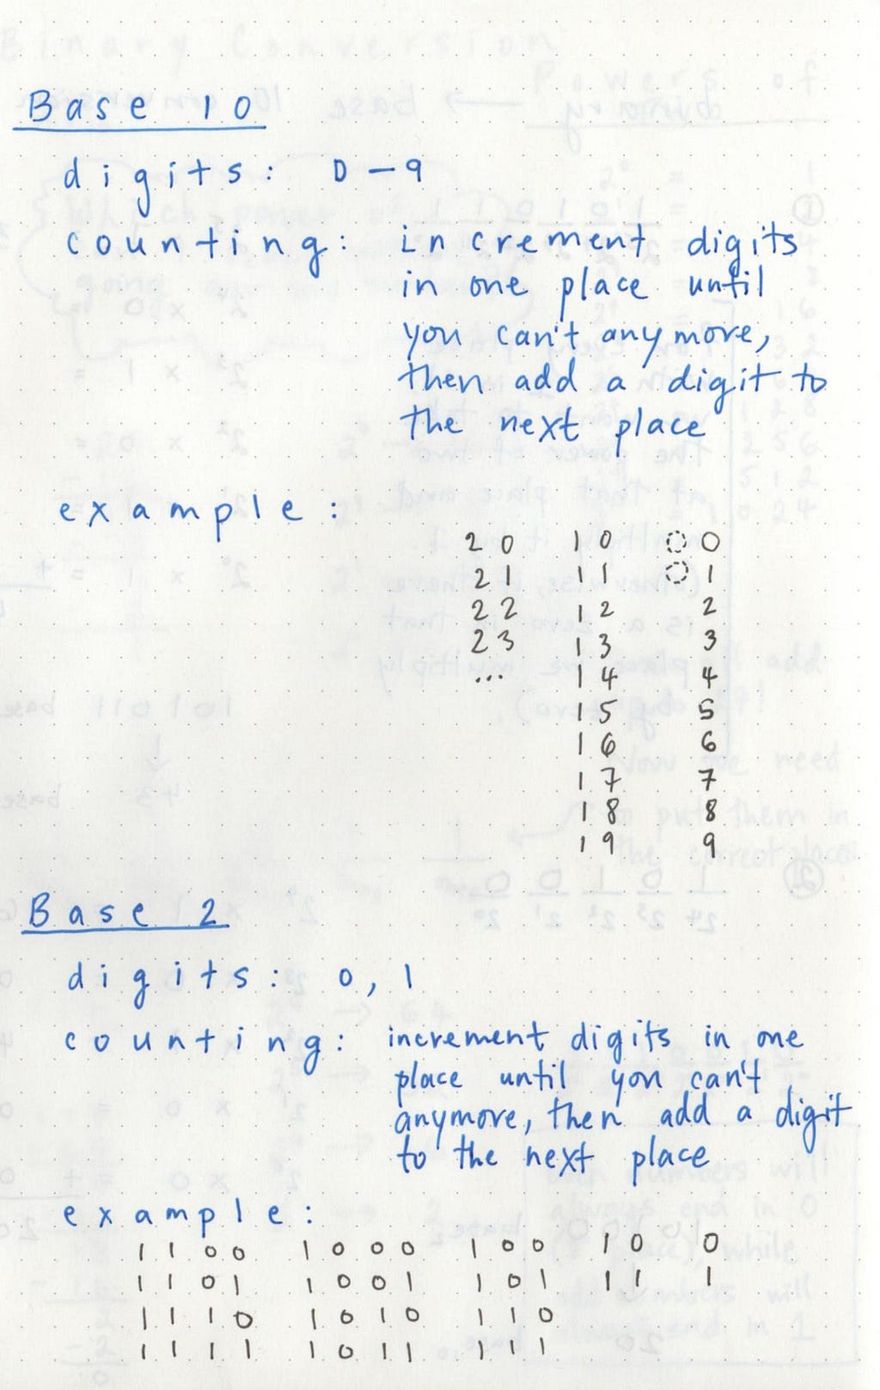 Base 10
digits: 0-9
counting: increment digits
in one place until
you can't anymore,
then add a digit to
the next place
example:
20 10 0
21 11 1
22 12 2
23 13 3
... 14 4
15 5
16 6
17 7
18 8
19 9
Base 2
digits: 0, 1
counting: increment digits in one
place until you can't
anymore, then add a digit
to the next place
example:
1100 1000 100 10 0
1101 1001 101 11 1
1110 1010 110
1111 1011 111